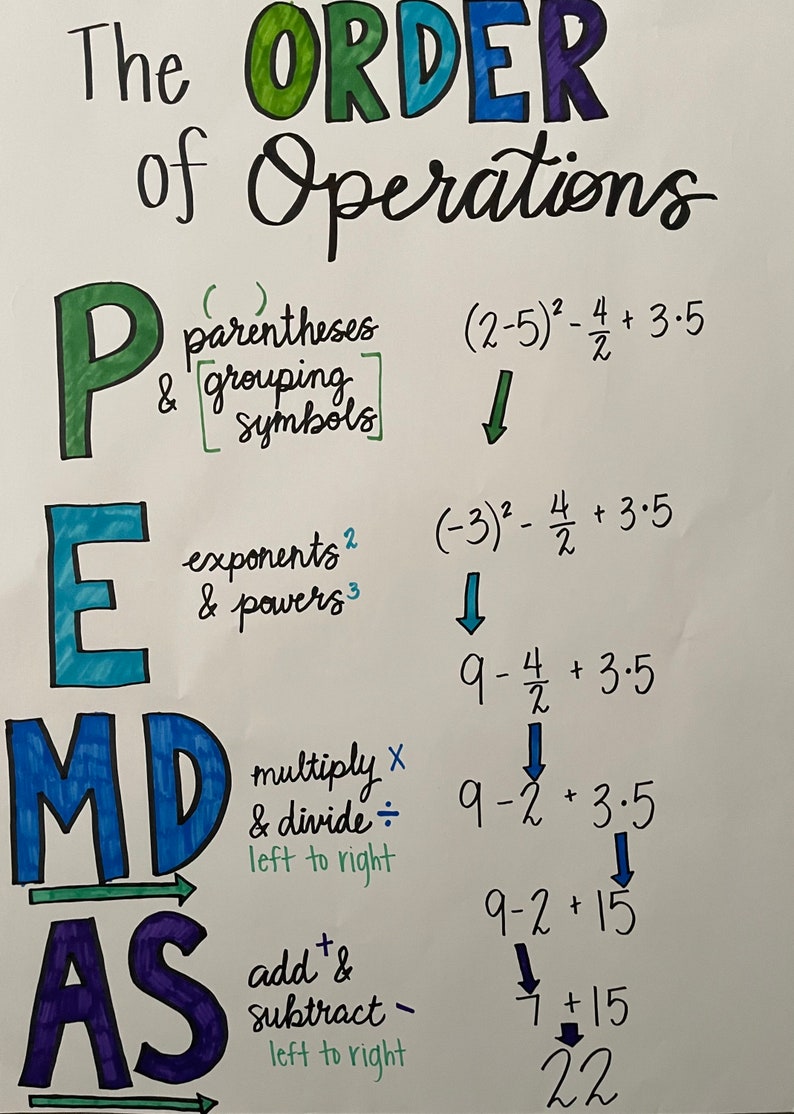 The ORDER
of Operations
P
( )
parentheses
& [grouping
symbols]
(2-5)² - 4/2 + 3·5
E
exponents²
& powers³
(-3)² - 4/2 + 3·5
9 - 4/2 + 3·5
MD
multiply x
& divide ÷
left to right
9 - 2 + 3·5
9-2 + 15
AS
add + &
subtract -
left to right
7 + 15
22